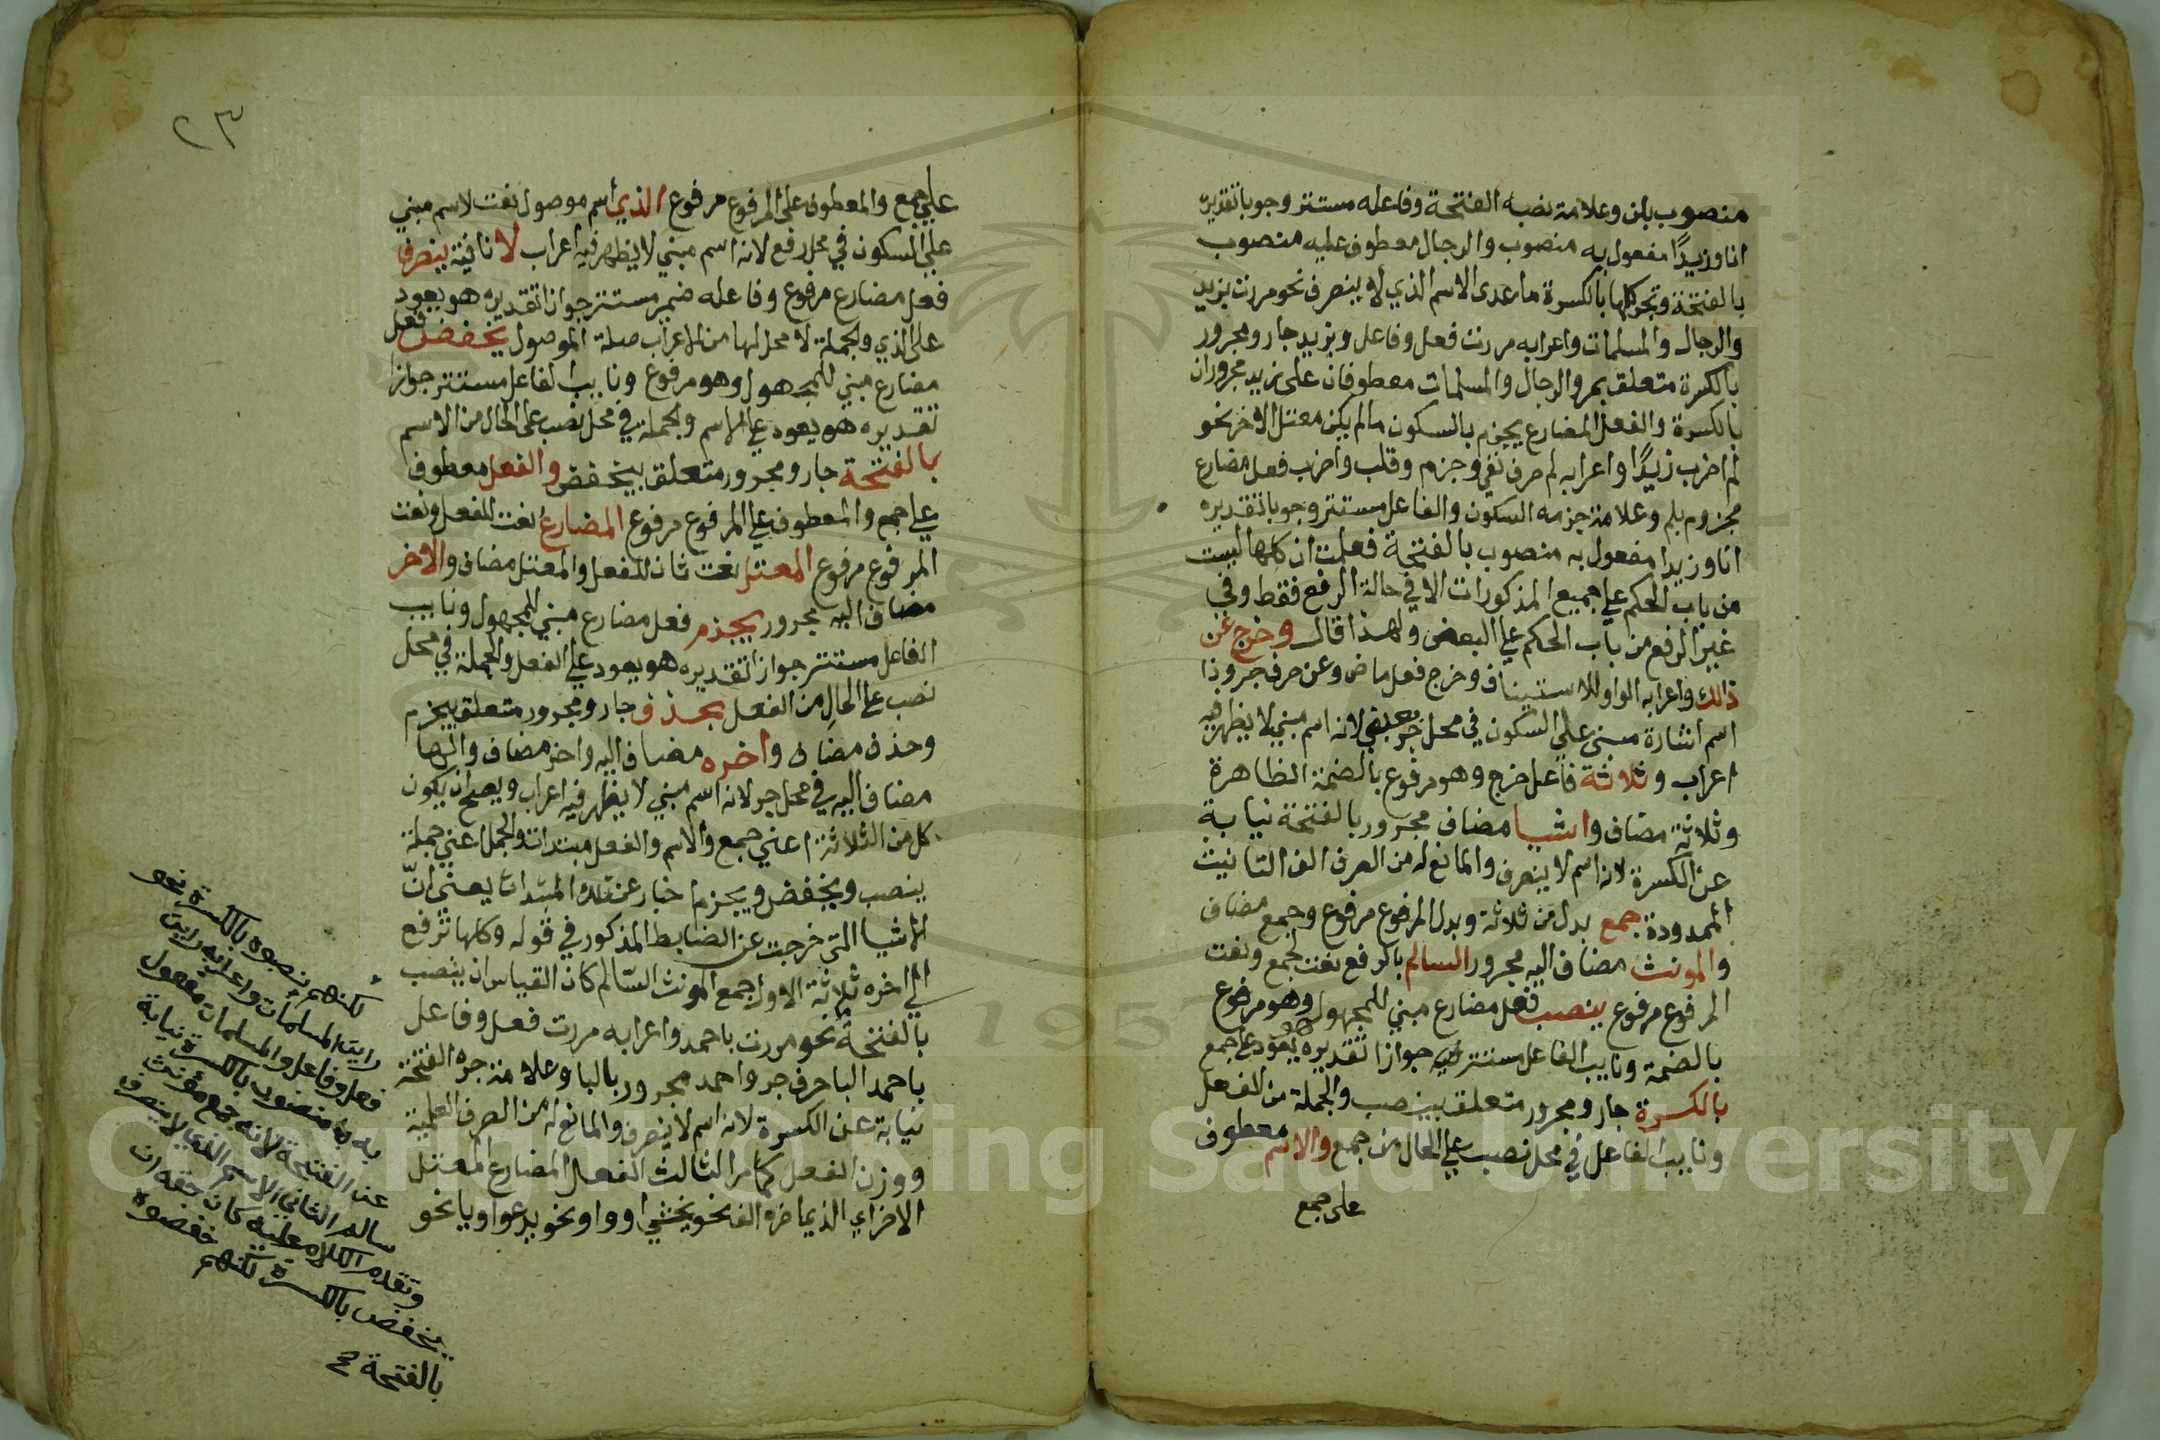 منصوب بان وعلامة نصبه الفتحة وفاعله مستتر وجوبا تقديره
انا وزيدًا مفعول به منصوب والرجال معطوف عليه منصوب
بالفتحة وتجر كلها بالكسرة ما عدى الاسم الذي لا ينصرف نحو مررت بزيد
والرجال والمسلمات واعرابه مررت فعل وفاعل وبزيد جار ومجرور
بالكسرة متعلق بمر والرجال والمسلمات معطوفان على زيد مجروران
بالكسرة والفعل المضارع يجزم بالسكون ما لم يكن معتل الاخر نحو
لم اضرب زيدًا واعرابه لم حرف نفي وجزم وقلب واضرب فعل مضارع
مجزوم بلم وعلامة جزمه السكون والفاعل مستتر وجوبا تقديره
انا وزيدا مفعول به منصوب بالفتحة فعلمت ان كلها ليست
من باب الحكم علي جميع المذكورات الا في حالة الرفع فقط وفي
غير الرفع من باب الحكم علي البعض ولهذا قال وخرج عن
ذالك واعرابه الواو للاستيناف وخرج فعل ماض وعن حرف جر وذا
اسم اشارة مبني علي السكون في محل جر بعن لانه اسم مبني لا يظهر فيه
اعراب وثلاثة فاعل خرج وهو مرفوع بالضمة الظاهرة
وثلاثة مضاف واشيا مضاف مجرور بالفتحة نيابة
عن الكسرة لانه اسم لا ينصرف والمانع له من الصرف الف التانيث
الممدودة جمع بدل من ثلاثة وبدل المرفوع مرفوع وجمع مضاف
والمونث مضاف اليه مجرور السالم بالرفع نعت لجمع ونعت
المرفوع مرفوع ينصب فعل مضارع مبني للمجهول وهو مرفوع
بالضمة ونايب الفاعل مستتر فيه جوازا تقديره هو يعود علي جمع
بالكسرة جار ومجرور متعلق بينصب والجملة من الفعل
ونايب الفاعل في محل نصب علي الحال من جمع والاسم معطوف
على جمع
٢٣
علي جمع والمعطوف على المرفوع مرفوع الذي اسم موصول نعت لاسم مبني
علي السكون في محل رفع لانه اسم مبني لا يظهر فيه اعراب لا نافية ينصرف
فعل مضارع مرفوع وفاعله ضمير مستتر جوازا تقديره هو يعود
على الذي والجملة لا محل لها من الاعراب صلة الموصول يخفض فعل
مضارع مبني للمجهول وهو مرفوع ونايب الفاعل مستتر جوازا
تقديره هو يعود علي الاسم والجملة في محل نصب على الحال من الاسم
بالفتحة جار ومجرور متعلق بيخفض والفعل معطوف
علي جمع والمعطوف علي المرفوع مرفوع المضارع نعت للفعل ونعت
المرفوع مرفوع المعتل نعت ثان للفعل والمعتل مضاف والاخر
مضاف اليه مجرور يجزم فعل مضارع مبني للمجهول ونايب
الفاعل مستتر جوازا تقديره هو يعود علي الفعل والجملة في محل
نصب علي الحال من الفعل بحذف جار ومجرور متعلق بيجزم
وحذف مضاف واخره مضاف اليه واخر مضاف والها
مضاف اليه في محل جر لانه اسم مبني لا يظهر فيه اعراب ويصح ان يكون
كل من الثلاثة اعني جمع والاسم والفعل مبتدات والجمل اعني جملة
ينصب ويخفض ويجزم اخبار عن تلك المبتدات يعني انّ
الاشيا التي خرجت عن الضابط المذكور في قوله وكلها ترفع
الي اخره ثلاثة الاول جمع المونث السّالم كان القياس ان ينصب
بالفتحة نحو مررت باحمد واعرابه مررت فعل وفاعل
باحمد البا حرف جر واحمد مجرور بالبا وعلامة جره الفتحة
نيابة عن الكسرة لانه اسم لا ينصرف والمانع له من الصرف العلمية
ووزن الفعل كما مر الثالث الفعل المضارع المعتل
الاخر اي الذي اخره الف نحو يخشي او واو نحو يدعوا او يا نحو
لكنهم نصبوه بالكسرة نحو
رايت المسلمات واعرابه رايت
فعل وفاعل والمسلمات مفعول
به منصوب بالكسرة نيابة
عن الفتحة لانه جمع مؤنث
سالم الثاني الاسم الذي لا ينصرف
وتقدم الكلام عليه كان حقه ان
يخفض بالكسرة لكنهم خفضوه
بالفتحة صح
Copyright © King Saud University
195